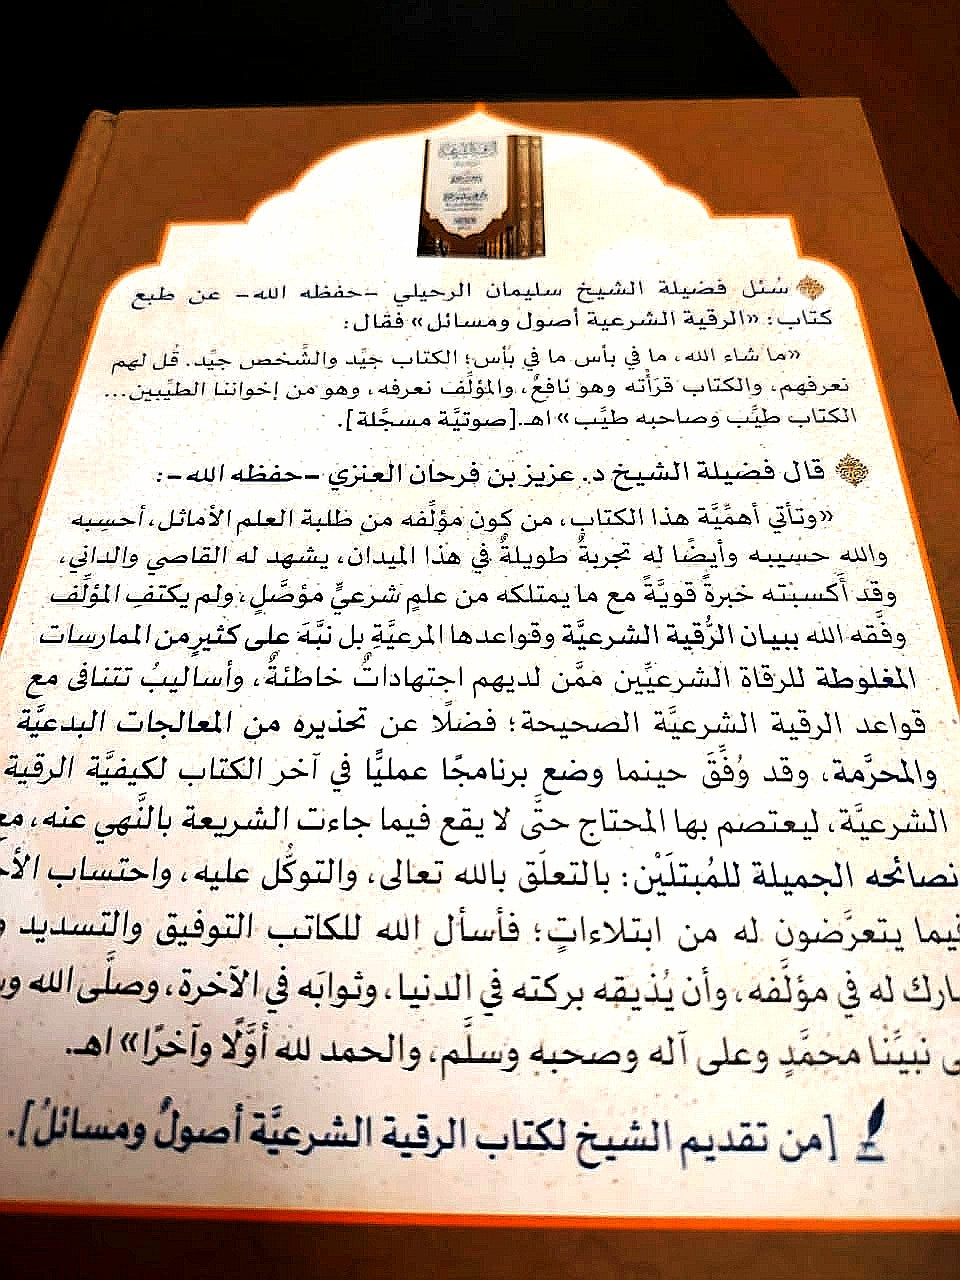 سُئل فضيلة الشيخ سليمان الرحيلي -حفظه الله- عن طبع
كتاب: «الرقية الشرعية أصول ومسائل» فقال:
«ما شاء الله، ما في بأس ما في بأس؛ الكتاب جيِّد والشَّخص جيِّد. قُل لهم
نعرفهم، والكتاب قرَأْته وهو نافعٌ، والمؤلِّف نعرفه، وهو من إخواننا الطيِّبين...
الكتاب طيِّب وصاحبه طيِّب» اهـ.[صوتيَّة مسجَّلة].
قال فضيلة الشيخ د. عزيز بن فرحان العنزي -حفظه الله-:
«وتأتي أهمِّيَّة هذا الكتاب، من كون مؤلِّفه من طلبة العلم الأماثل، أحسبه
والله حسيبه وأيضًا له تجربةٌ طويلةٌ في هذا الميدان، يشهد له القاصي والداني،
وقد أكسبته خبرةً قويَّةً مع ما يمتلكه من علمٍ شرعيٍّ مؤصَّلٍ، ولم يكتفِ المؤلِّف
وفَّقه الله ببيان الرُّقية الشرعيَّة وقواعدها المرعيَّةِ بل نبَّهَ على كثيرٍ من الممارسات
المغلوطة للرقاة الشرعيِّين ممَّن لديهم اجتهاداتٌ خاطئةٌ، وأساليبُ تتنافى مع
قواعد الرقية الشرعيَّة الصحيحة؛ فضلًا عن تحذيره من المعالجات البدعيَّة
والمحرَّمة، وقد وُفِّقَ حينما وضع برنامجًا عمليًّا في آخر الكتاب لكيفيَّة الرقية
الشرعيَّة، ليعتصم بها المحتاج حتَّى لا يقع فيما جاءت الشريعة بالنَّهي عنه، مع
نصائحه الجميلة للمُبتلَيْن: بالتعلّق بالله تعالى، والتوكُّل عليه، واحتساب
فيما يتعرَّضون له من ابتلاءاتٍ؛ فأسأل الله للكاتب التوفيق والتسديد
له في مؤلَّفه، وأن يُذيقه بركته في الدنيا، وثوابَه في الآخرة، وصلَّى الله
نبيِّنا محمَّدٍ وعلى آله وصحبه وسلَّم، والحمد لله أوَّلًا وآخرًا» اهـ.
[من تقديم الشيخ لكتاب الرقية الشرعيَّة أصولٌ ومسائلُ].